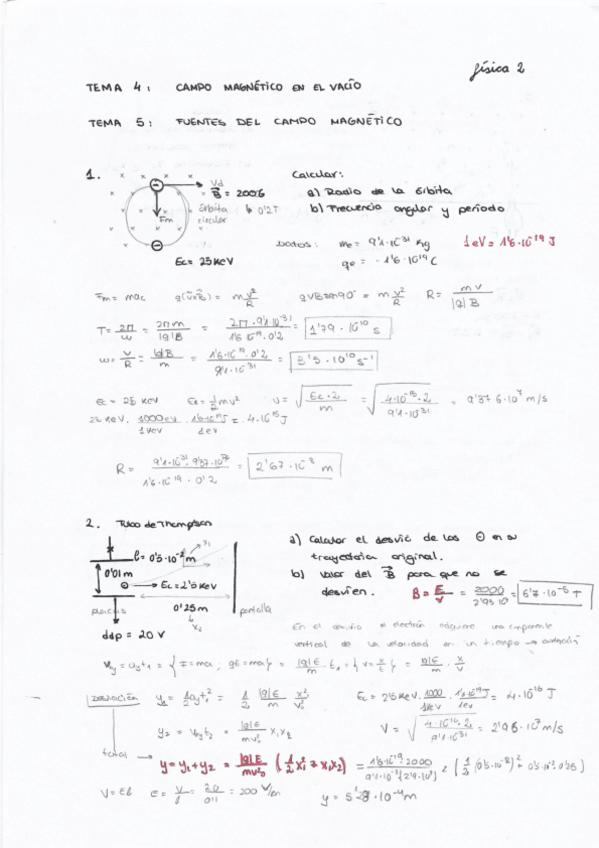 física 2
TEMA 4: CAMPO MAGNÉTICO EN EL VACÍO
TEMA 5: FUENTES DEL CAMPO MAGNÉTICO
1.
Vd
B⃗ = 200G
↳ 0'2T
órbita
circular
Fm
Ec = 25 KeV
Calcular:
a) Radio de la órbita
b) Frecuencia angular y periodo
Datos: me = 9'1·10⁻³¹ Kg 1eV = 1'6·10⁻¹⁹ J
qe = -1'6·10⁻¹⁹ C
Fm = mac q(v⃗×B⃗) = m v²/R qvB sen90° = m v²/R R = mv/|q|B
T = 2π/ω = 2πm/|q|B = 2π·9'1·10⁻³¹/1'6·10⁻¹⁹·0'2 = 1'79·10⁻¹⁰ s
ω = v/R = |q|B/m = 1'6·10⁻¹⁹·0'2/9'1·10⁻³¹ = 3'5·10¹⁰ s⁻¹
Ec = 25 KeV Ec = ½mv² v = √(Ec·2/m) = √(4·10⁻¹⁵·2/9'1·10⁻³¹) = 9'376·10⁷ m/s
25 KeV · 1000eV/1KeV · 1'6·10⁻¹⁹J/1eV = 4·10⁻¹⁵ J
R = 9'1·10⁻³¹·9'37·10⁷/1'6·10⁻¹⁹·0'2 = 2'67·10⁻³ m
2. Tubo de Thompson
l = 0'5·10⁻² m
x₁
0'01 m
Ec = 2'5 KeV
0'25 m
placas
x₂
pantalla
ddp = 20 V
a) Calcular el desvío de los ⊖ en su
trayectoria original.
b) Valor del B⃗ para que no se
desvíen. B = E/V = 2000/2'93·10 = 6'7·10⁻⁵ T
En el electrón adquiere una componente
vertical de la velocidad en un tiempo →
Voy = ayt₁ = { F = ma; qE = may } = |q|E/m · t₁ { v = x/t } = |q|E/m · x/v
DESVIACIÓN y₁ = ½ayt₁² = ½ |q|E/m x₁²/v₀² Ec = 2'5 KeV · 1000/1KeV · 1'6·10⁻¹⁹J/1eV = 4·10⁻¹⁶ J
y₂ = Voyt₂ = |q|E/mv₀² x₁x₂ V = √(4·10⁻¹⁶·2/9'1·10⁻³¹) = 2'96·10⁷ m/s
total → y = y₁ + y₂ = |q|E/mv₀² (½x₁² + x₁x₂) = 1'6·10⁻¹⁹·2000/9'1·10⁻³¹(2'9·10⁷) · (½(0'5·10⁻²)² + 0'5·10⁻²·0'25)
V = El E = V/l = 20/0'1 = 200 V/m y = 5'28·10⁻⁴ m